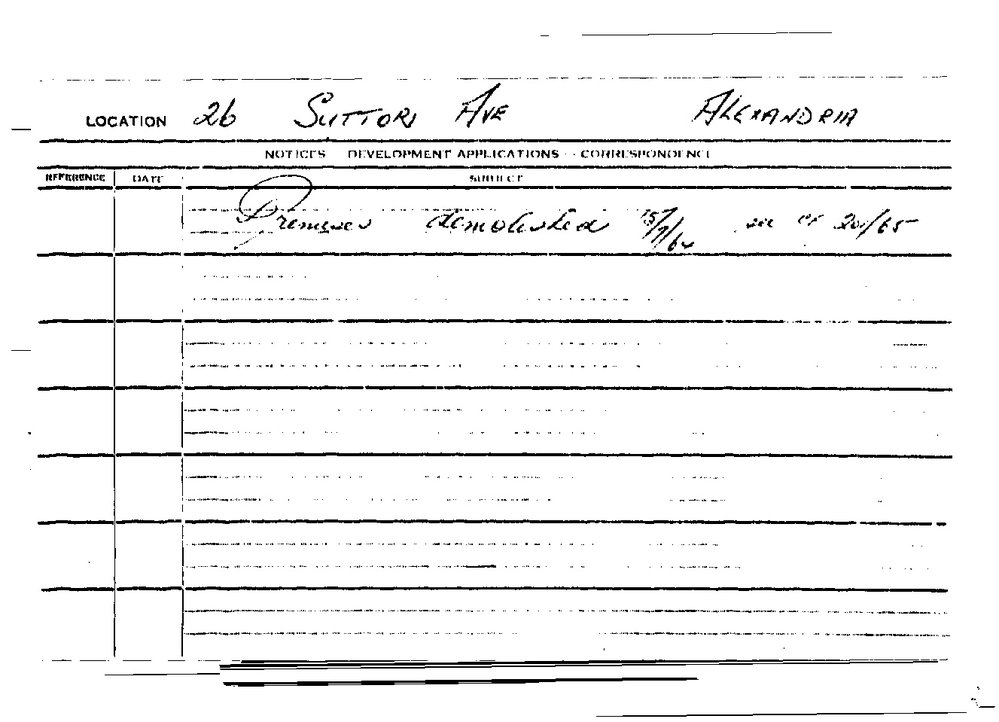 LOCATION 26 SUTTORI AVE ALEXANDRIA
NOTICES DEVELOPMENT APPLICATIONS CORRESPONDENCE
REFERENCE DATE SUBJECT
Premises demolished see 201/65